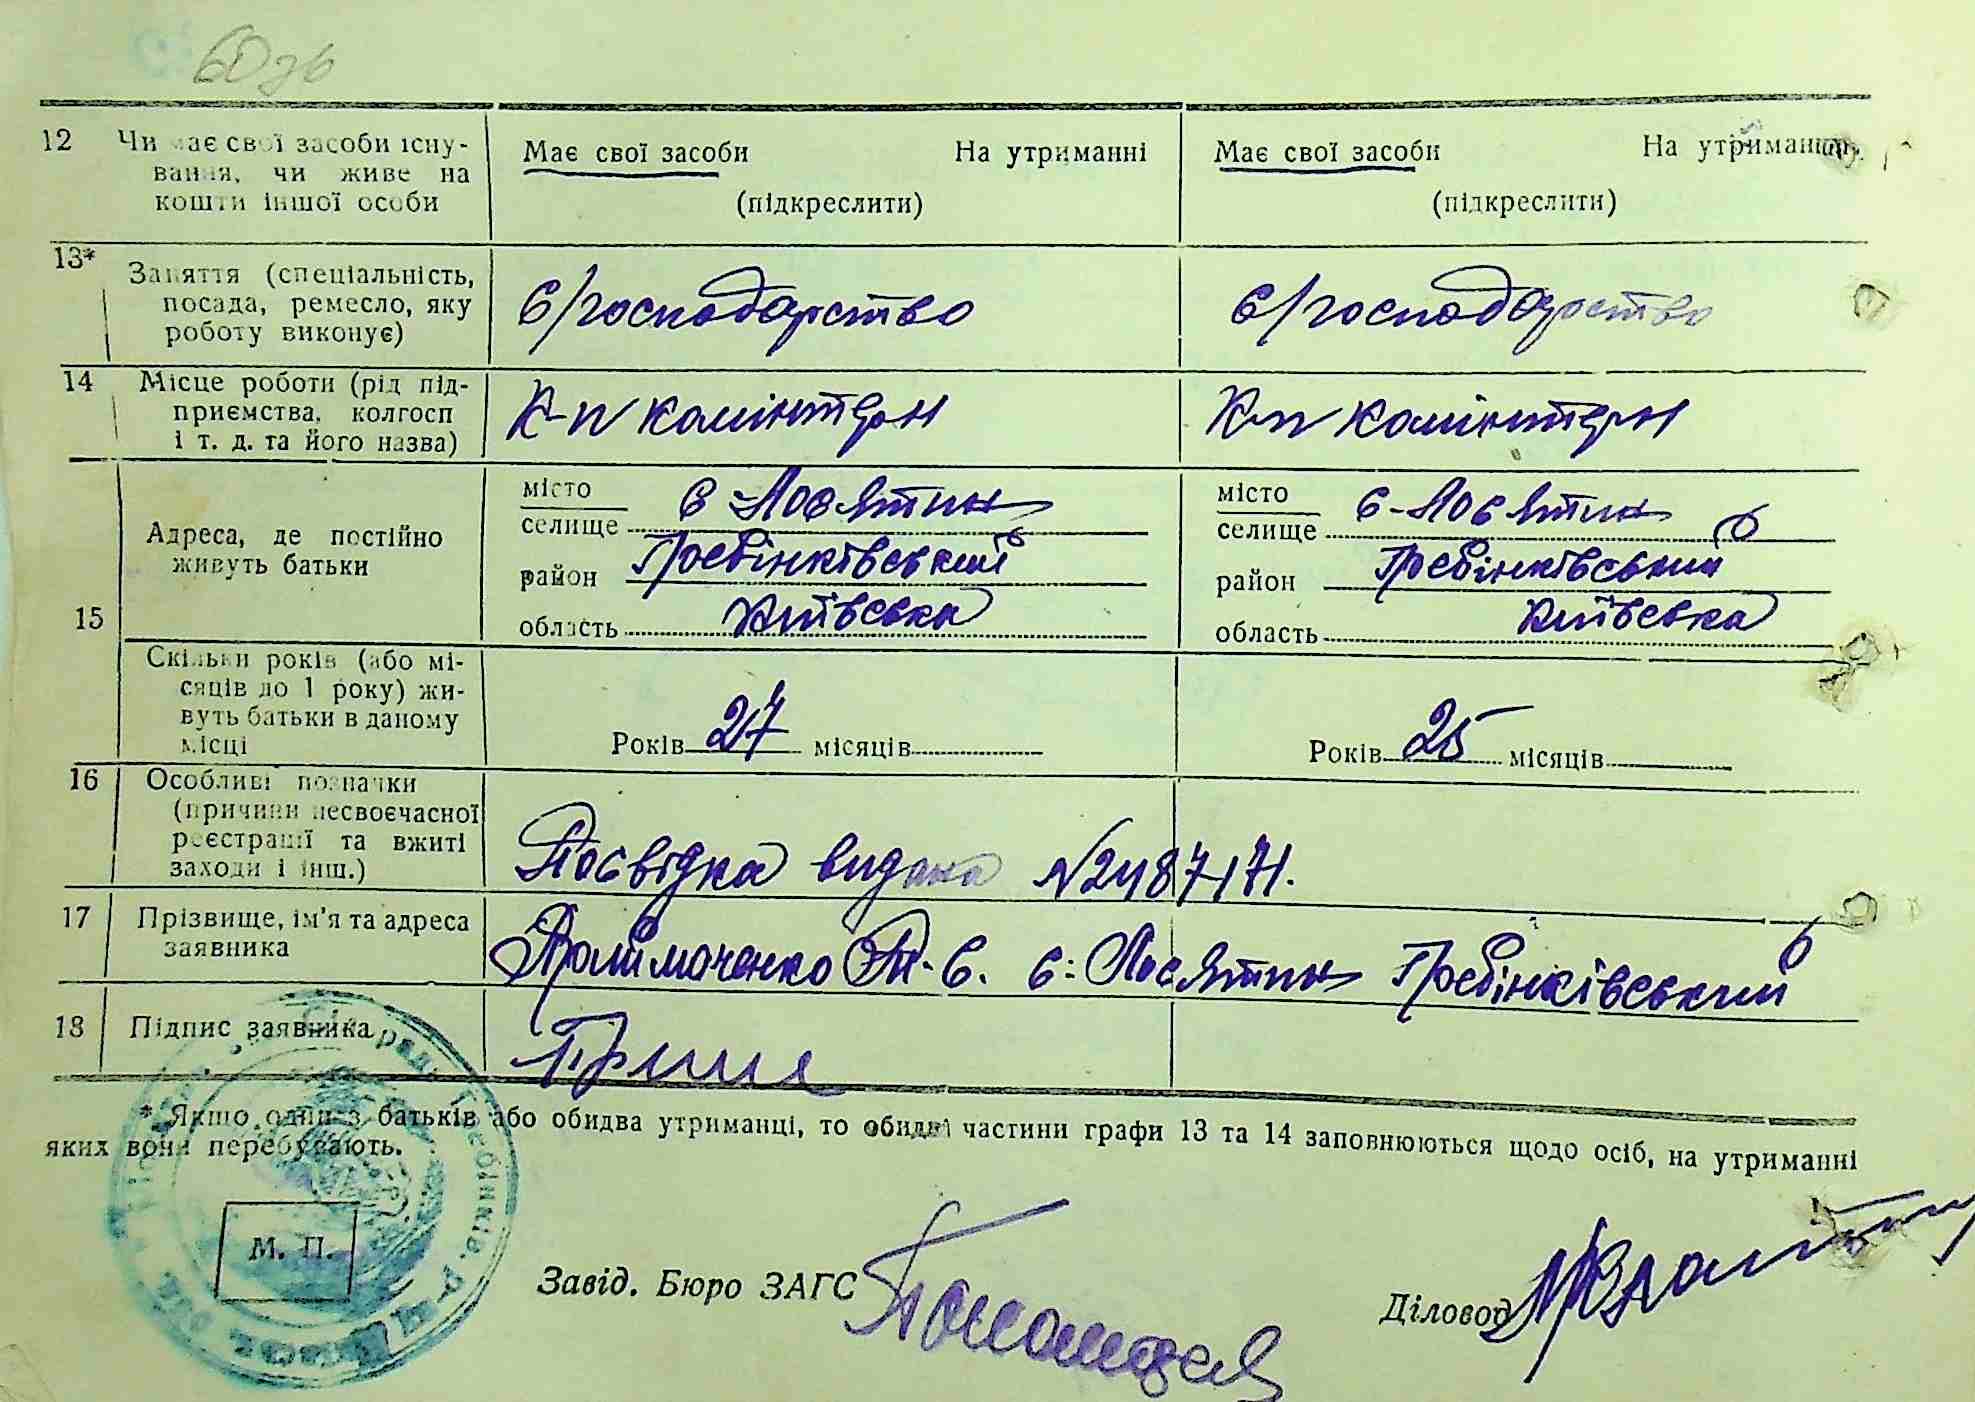 60зв
12 Чи має свої засоби існу-
вання, чи живе на
кошти іншої особи
Має свої засоби На утриманні
(підкреслити)
Має свої засоби На утриманні
(підкреслити)
13* Заняття (спеціальність,
посада, ремесло, яку
роботу виконує)
с/господарство
с/господарство
14 Місце роботи (рід під-
приємства, колгосп
і т. д. та його назва)
к-п комінтерн
к-п комінтерн
15
Адреса, де постійно
живуть батьки
місто
селище с-Лосятин
район Гребінківський
область Київська
місто
селище с-Лосятин
район Гребінківський
область Київська
Скільки років (або мі-
сяців до 1 року) жи-
вуть батьки в даному
місці
Років 27 місяців
Років 25 місяців
16 Особливі позначки
(причини несвоєчасної
реєстрації та вжиті
заходи і інш.)
Посвідка видана №
17 Прізвище, ім'я та адреса
заявника
с: Лосятин Гребінківський
18 Підпис заявника
* Якщо один з батьків або обидва утриманці, то обидві частини графи 13 та 14 заповнюються щодо осіб, на утриманні
яких вони перебувають.
М. П.
Завід. Бюро ЗАГС
Діловод